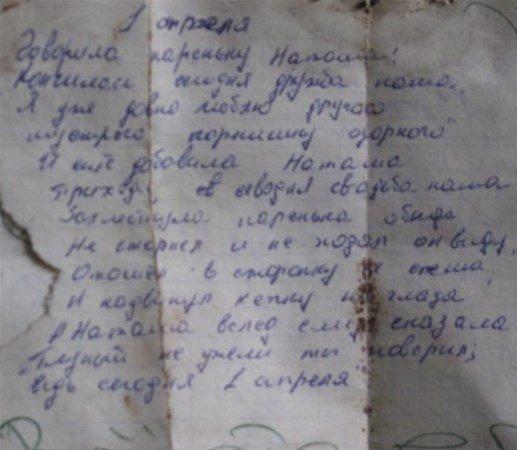 1 апреля
Говорила пареньку Наташа!
Кончилась сегодня дружба наша.
Я уже давно люблю другого
парнишку озорного"
И ещё добавила Наташа
Приходи, сегодня свадьба наша
Захлестнула паренька обида
Не стерпел и не подал он виду,
Отошёл в сторонку
И надвинул кепку на глаза
А Наташа вслед ему сказала
"Глупый не ужели ты поверил;
ведь сегодня 1 апреля